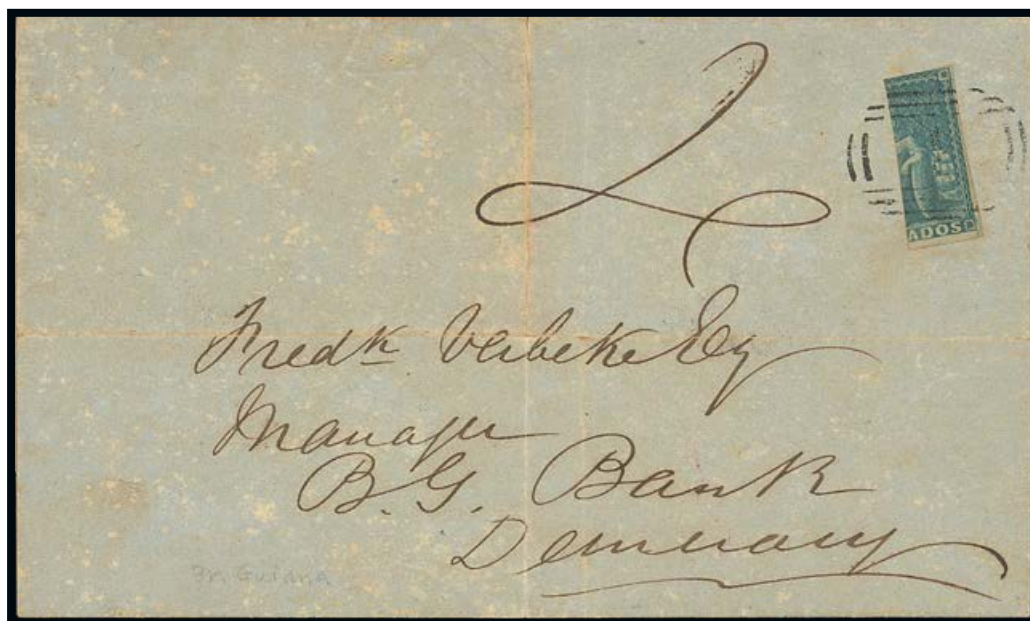 2
ADOS
Fredk Verbeke Esq
Manager
B. G. Bank
Demerary
Br. Guiana